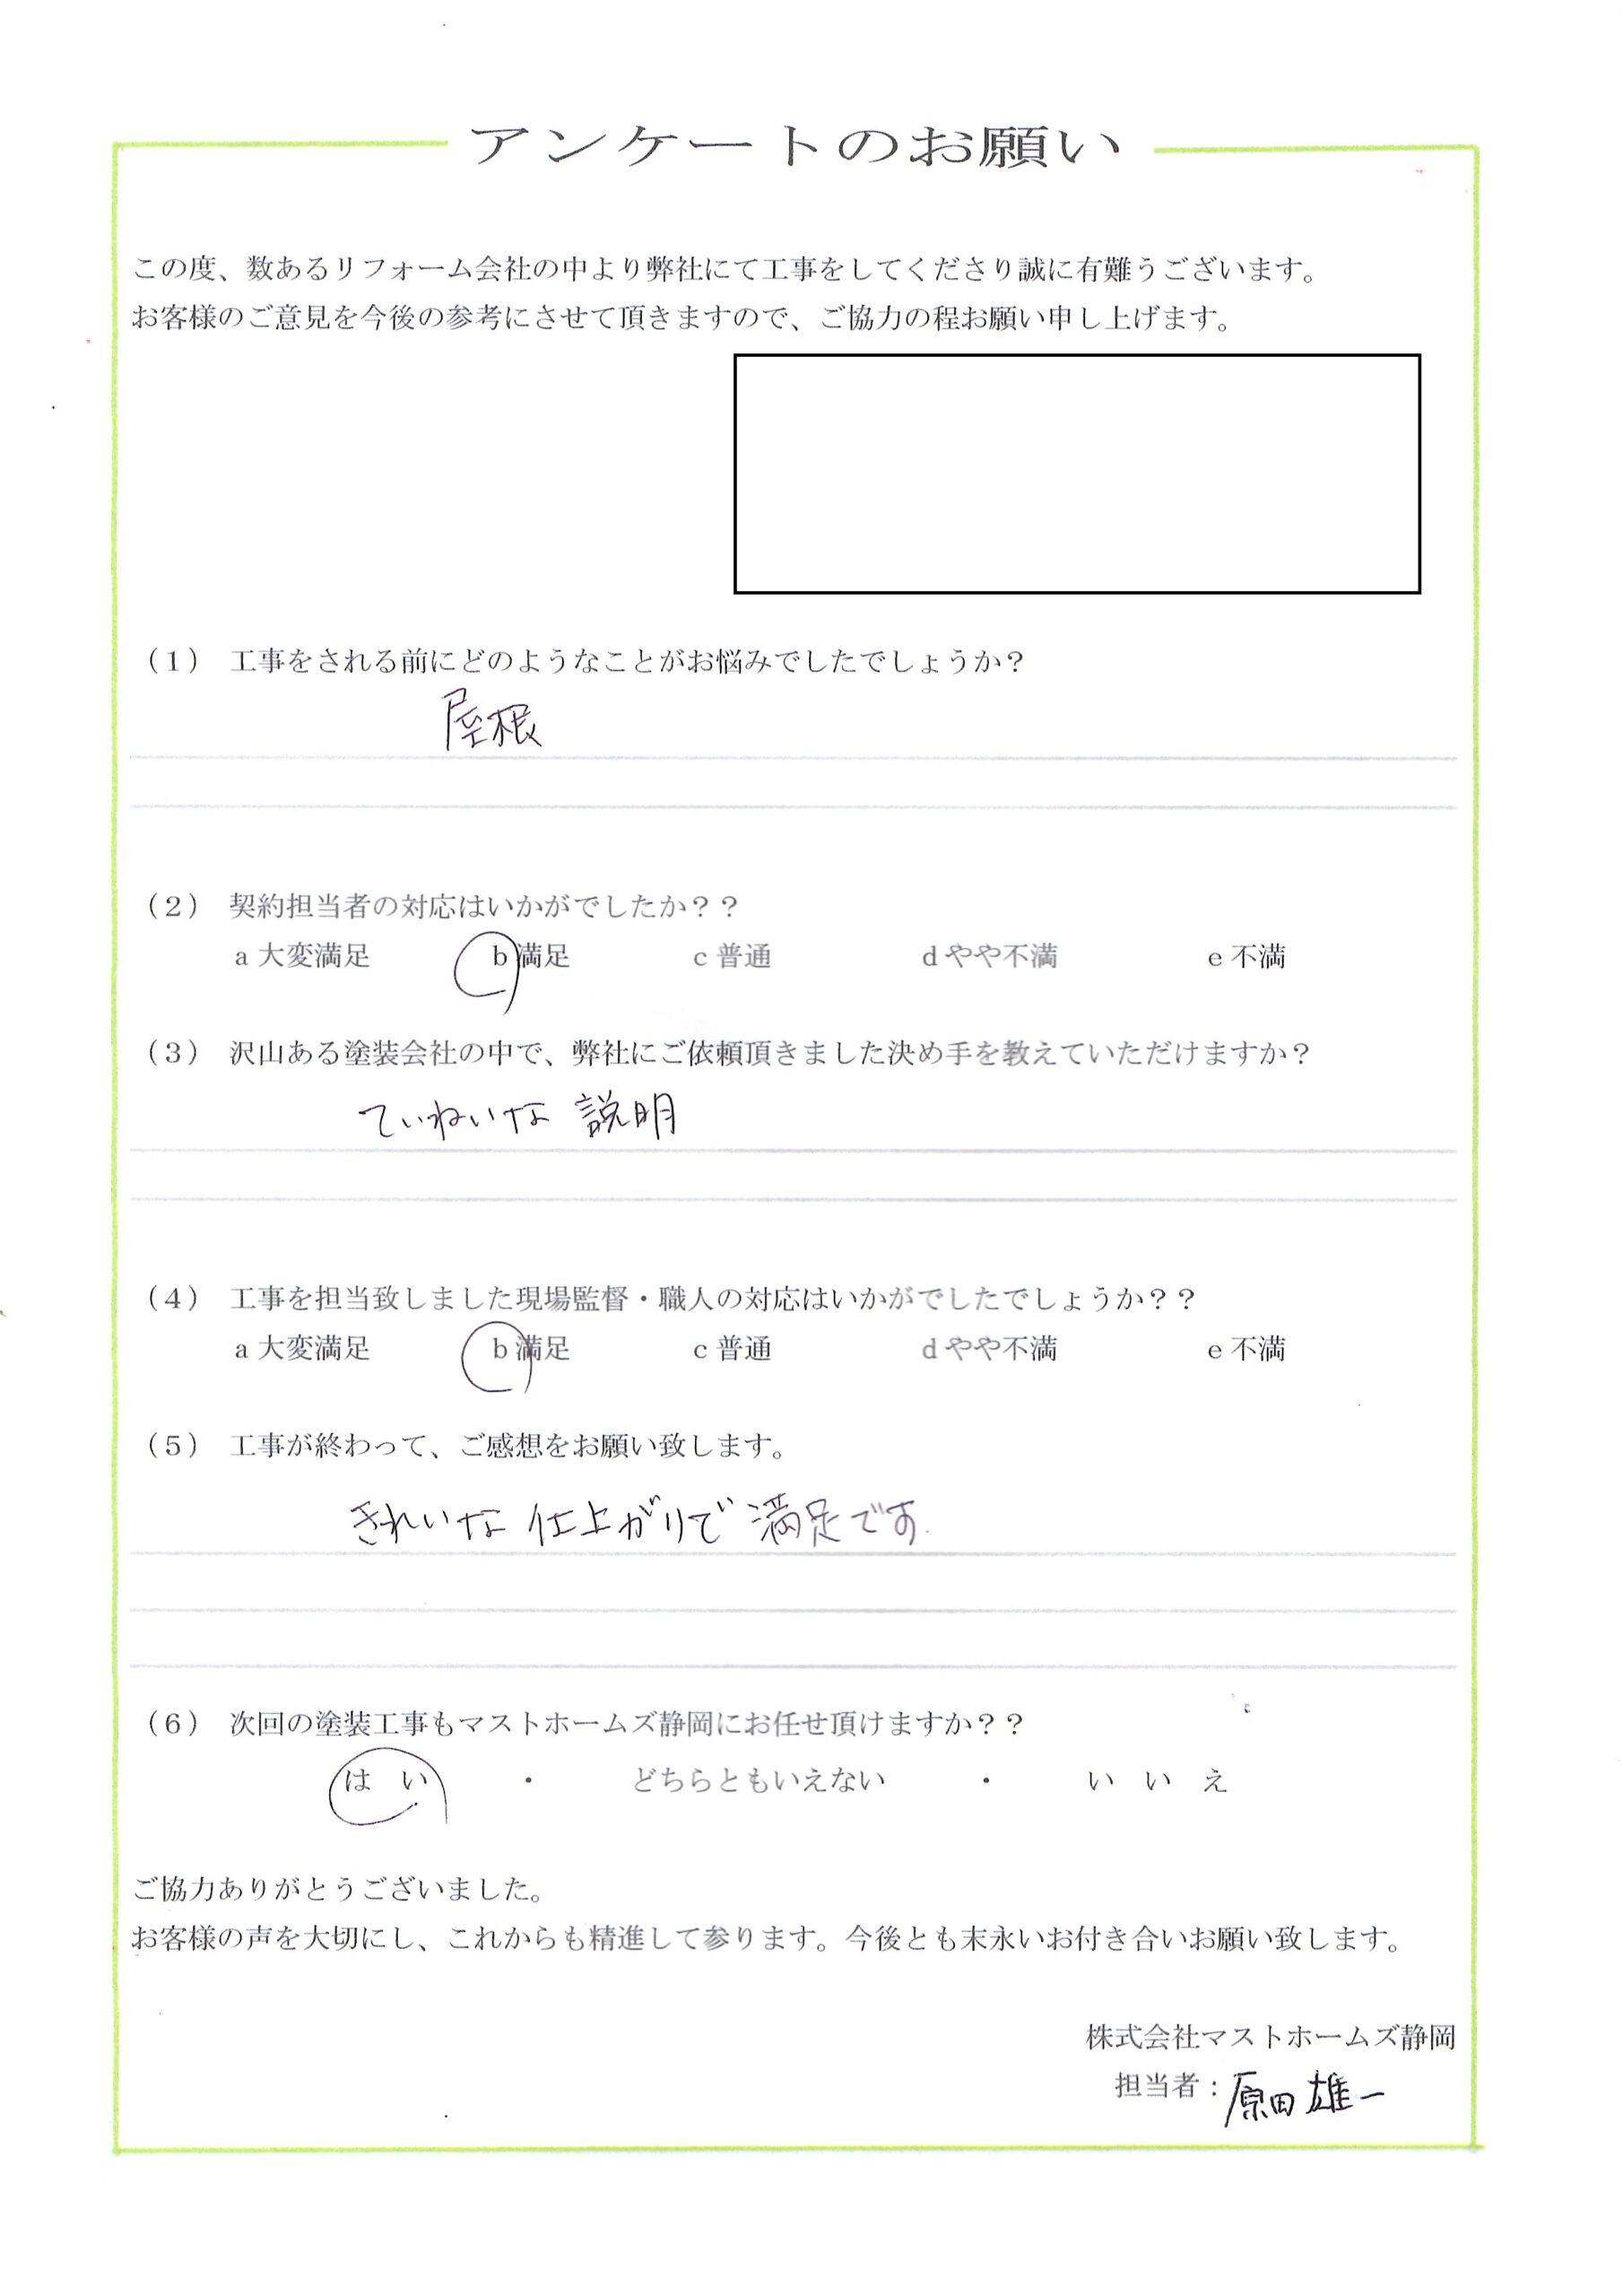 アンケートのお願い
この度、数あるリフォーム会社の中より弊社にて工事をしてくださり誠に有難うございます。
お客様のご意見を今後の参考にさせて頂きますので、ご協力の程お願い申し上げます。
（1） 工事をされる前にどのようなことがお悩みでしたでしょうか？
屋根
（2） 契約担当者の対応はいかがでしたか？？
a 大変満足 b 満足 c 普通 d やや不満 e 不満
（3） 沢山ある塗装会社の中で、弊社にご依頼頂きました決め手を教えていただけますか？
ていねいな 説明
（4） 工事を担当致しました現場監督・職人の対応はいかがでしたでしょうか？？
a 大変満足 b 満足 c 普通 d やや不満 e 不満
（5） 工事が終わって、ご感想をお願い致します。
きれいな 仕上がりで 満足です.
（6） 次回の塗装工事もマストホームズ静岡にお任せ頂けますか？？
は い ・ どちらともいえない ・ い い え
ご協力ありがとうございました。
お客様の声を大切にし、これからも精進して参ります。今後とも末永いお付き合いお願い致します。
株式会社マストホームズ静岡
担当者：原田 雄一